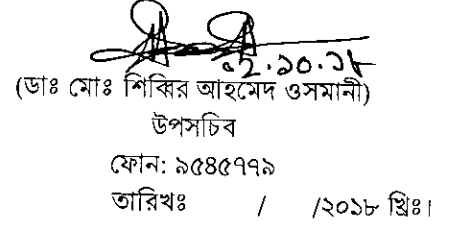 ০২.১০.১৮
(ডাঃ মোঃ শিব্বির আহমেদ ওসমানী)
উপসচিব
ফোন: ৯৫৪৫৭৭৯
তারিখঃ / /২০১৮ খ্রিঃ।